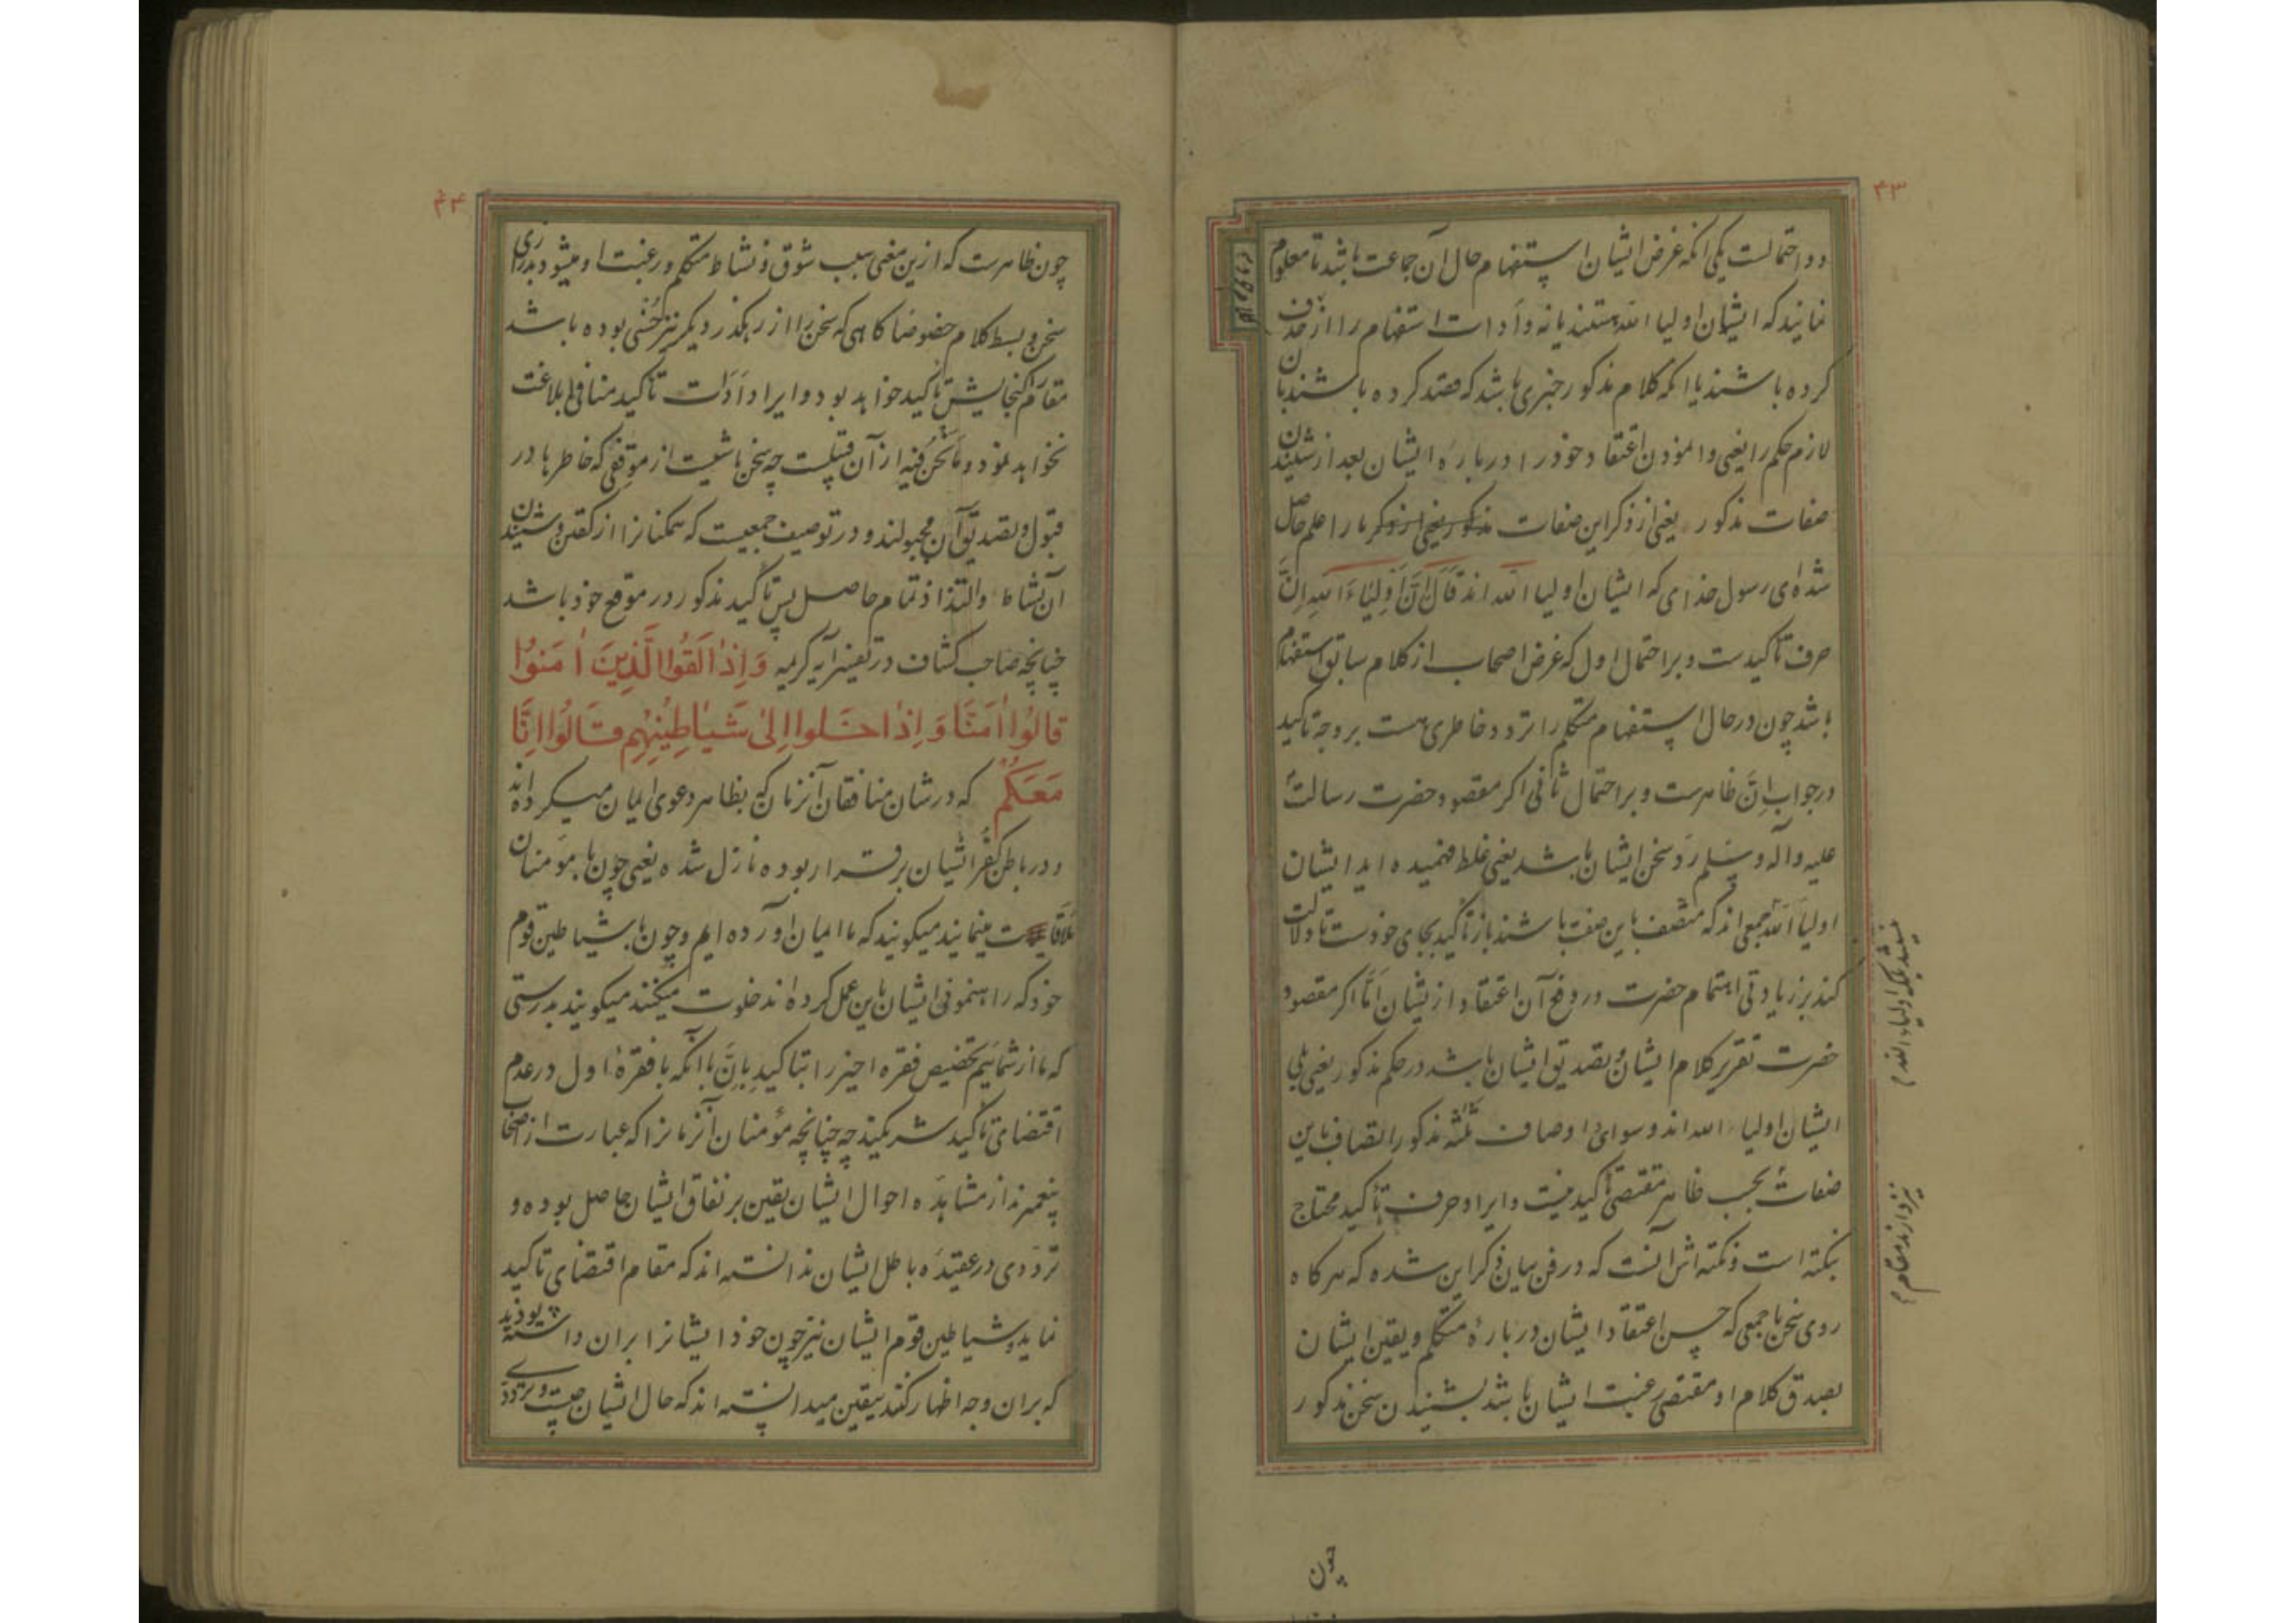 ۴۳
دو احتمالست یکی انکه غرض ایشان استفهام حال آن جماعت باشد تا معلوم
نمایند که ایشان اولیا الله هستند یا نه و اَدات استفهام را از حذف
کرده باشند یا انکه کلام مذکور خبری باشد که قصد کرده باشند بان
لازم حکم را یعنی وانمودن اعتقاد خود را در باره ایشان بعد از شنیدن
صفات مذکور یعنی از ذکر این صفات ما را علم حاصل
شده ای رسول خدای که ایشان اولیا الله اند قَالَ اِنَّ اَوْلِیَاءَ اللهِ اِنَّ
حرف تاکیدست و بر احتمال اول که غرض اصحاب از کلام سابق استفهام
باشد چون در حال استفهام متکلم را تردد خاطری هست بر وجه تاکید
در جواب اِنَّ ظاهرست و بر احتمال ثانی اکر مقصود حضرت رسالت
علیه و آله و سلم ردّ سخن ایشان باشد یعنی غلط فهمیده اید ایشان
اولیا الله جمعی اند که متصف باین صفت باشند باز تاکید بجای خودست تا دلالت
کند بر زیادتی اهتمام حضرت در دفع آن اعتقاد از یشان اَمّا اکر مقصود
حضرت تقریر کلام ایشان و تصدیق ایشان باشد در حکم مذکور یعنی بلی
ایشان اولیاء الله اند و سوای اوصاف ثلثه مذکور اتصاف باین
صفات بحسب ظاهر مقتضی تاکید نیست و ایراد حرف تاکید محتاج
بنکته است و نکته اش آنست که در فن بیان ذکر این شده که هر کاه
روی سخن با جمعی که حسن اعتقاد ایشان در بارهٔ متکلم و یقین ایشان
بصدق کلام او مقتضی رغبت ایشان باشد بشنیدن سخن مذکور
نیز دارند مقام
چون
۴۴
چون ظاهرست که ازین معنی سبب شوق و نشاط متکلم و رغبت او میشود بدرازی
سخن و بسط کلام خصوصا کاهی که سخن را از رهکذر دیکر نیز حُسنی بوده باشد
مقام کنجایش تاکید خواهد بود و ایراد اَدَات تاکید منافی بلاغت
نخواهد نمود و مانحن فیه از آن قبیلست چه سخن ناشیست از موقفی که خاطرها در
قبول و تصدیق آن مجبولند و در توصیف جمعیست که همکنانرا از کفتن و شنیدن
آن نشاط و التذاذ تمام حاصل پس تاکید مذکور در موقع خود باشد
چنانچه صاحب کشاف در تفسیر آیه کریمه وَاِذَا لَقُوا الَّذِینَ اٰمَنُوا
قَالُوا اٰمَنَّا وَ اِذَا خَلَوا اِلیٰ شَیَاطِینِهِم قَالُوا اِنَّا
مَعَکُم که در شان منافقان آنزمان که بظاهر دعوی ایمان میکرده اند
و در باطن کفر ایشان برقرار بوده نازل شده یعنی چون با مؤمنان
ملاقات مینمایند میکویند که ما ایمان آورده ایم و چون با شیاطین قوم
خود که راهنمونی ایشان باین عمل کرده اند خلوت میکنند میکویند بدرستی
که ما از شمائیم تخصیص فقره اخیر را بتاکید باِنَّ با آنکه با فقرهٔ اول در عدم
اقتضای تاکید شریکند چه چنانچه مؤمنان آنزمانرا که عبارت از اصحاب
پیغمبرند از مشاهَده احوال ایشان یقین بر نفاق ایشان حاصل بوده و
تردّدی در عقیدَه باطل ایشان ندانسته اند که مقام اقتضای تاکید
نماید و شیاطین قوم ایشان نیز چون خود ایشانرا بران داشته بودند
که بران وجه اظهار کنند بیقین میدانسته اند که حال ایشان چیست و ترددی